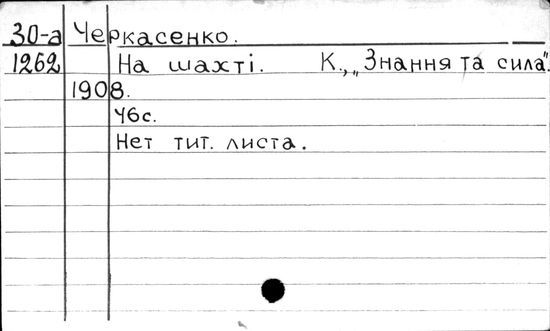 30-а Черкасенко.
1262 На шахті. К., „Знання та сила".
1908.
46с.
Нет тит. листа.